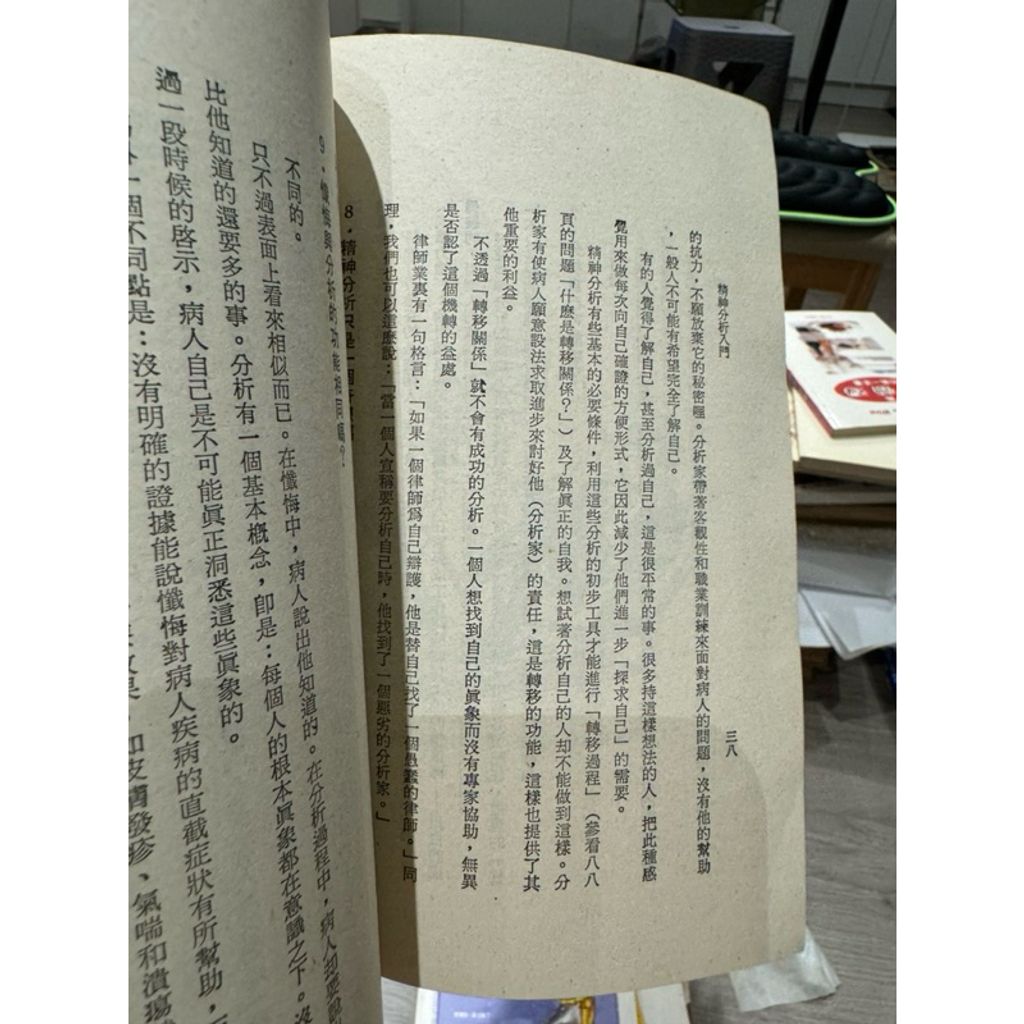 精神分析入門
三八
的抗力,不願放棄它的秘密哩。分析家帶著客觀性和職業訓練來面對病人的問題,沒有他的幫助
,一般人不可能有希望完全了解自己。
有的人覺得了解自己,甚至分析過自己,這是很平常的事。很多持這樣想法的人,把此種感
覺用來做每次向自己確證的方便形式,它因此減少了他們進一步「探求自己」的需要。
精神分析有些基本的必要條件,利用這些分析的初步工具才能進行「轉移過程」(參看八八
頁的問題「什麼是轉移關係?」)及了解眞正的自我。想試著分析自己的人却不能做到這樣。分
析家有使病人願意設法求取進步來討好他(分析家)的責任,這是轉移的功能,這樣也提供了其
他重要的利益。
不透過「轉移關係」就不會有成功的分析。一個人想找到自己的眞象而沒有專家協助,無異
是否認了這個機轉的益處。
律師業裏有一句格言:「如果一個律師爲自己辯護,他是替自己找了一個愚蠢的律師。」同
理,我們也可以這麼說:「當一個人宣稱要分析自己時,他找到了一個惡劣的分析家。」
8.精神分析只是一個
9.懺悔與分析的功能相同嗎?
不同的。
只不過表面上看來相似而已。在懺悔中,病人說出他知道的。在分析過程中,病人却要說
比他知道的還要多的事。分析有一個基本概念,卽是:每個人的根本眞象都在意識之下。沒
過一段時候的啓示,病人自己是不可能眞正洞悉這些眞象的。
一個不同點是:沒有明確的證據能說懺悔對病人疾病的直截症狀有所幫助,
如皮膚發疹、氣喘和潰瘍